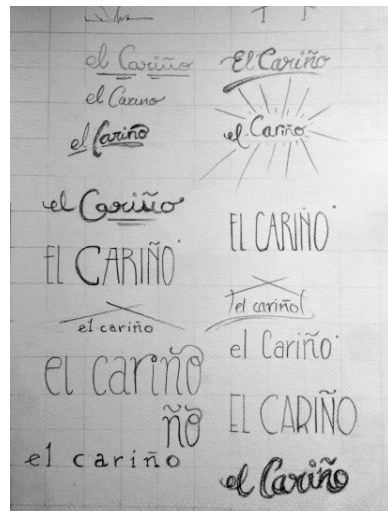 el Cariño
el Carino
el Cariño
el Cariño
EL CARIÑO
el cariño
el cariño
ñõ
el cariño
El Cariño
el Cariño
EL CARIÑO
el cariño
el Cariño
EL CARIÑO
el Cariño